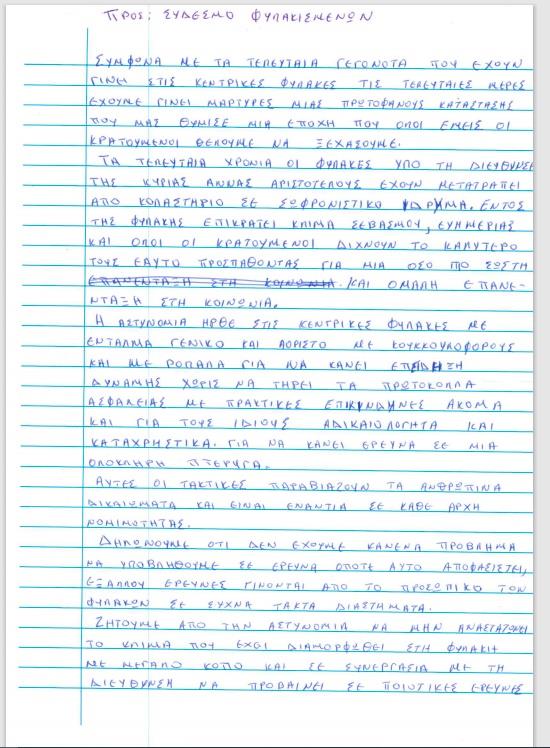 ΠΡΟΣ: ΣΥΔΕΣΜΟ ΦΥΛΑΚΙΣΜΕΝΩΝ
ΣΥΜΦΩΝΑ ΜΕ ΤΑ ΤΕΛΕΥΤΑΙΑ ΓΕΓΟΝΟΤΑ ΠΟΥ ΕΧΟΥΝ
ΓΙΝΕΙ ΣΤΙΣ ΚΕΝΤΡΙΚΕΣ ΦΥΛΑΚΕΣ ΤΙΣ ΤΕΛΕΥΤΑΙΕΣ ΜΕΡΕΣ
ΕΧΟΥΜΕ ΓΙΝΕΙ ΜΑΡΤΥΡΕΣ ΜΙΑΣ ΠΡΩΤΟΦΑΝΟΥΣ ΚΑΤΑΣΤΑΣΗΣ
ΠΟΥ ΜΑΣ ΘΥΜΙΣΕ ΜΙΑ ΕΠΟΧΗ ΠΟΥ ΟΛΟΙ ΕΜΕΙΣ ΟΙ
ΚΡΑΤΟΥΜΕΝΟΙ ΘΕΛΟΥΜΕ ΝΑ ΞΕΧΑΣΟΥΜΕ.
ΤΑ ΤΕΛΕΥΤΑΙΑ ΧΡΟΝΙΑ ΟΙ ΦΥΛΑΚΕΣ ΥΠΟ ΤΗ ΔΙΕΥΘΥΝΣΗ
ΤΗΣ ΚΥΡΙΑΣ ΑΝΝΑΣ ΑΡΙΣΤΟΤΕΛΟΥΣ ΕΧΟΥΝ ΜΕΤΑΤΡΑΠΕΙ
ΑΠΟ ΚΟΛΑΣΤΗΡΙΟ ΣΕ ΣΩΦΡΟΝΙΣΤΙΚΟ ΙΔΡΥΜΑ. ΕΝΤΟΣ
ΤΗΣ ΦΥΛΑΚΗΣ ΕΠΙΚΡΑΤΕΙ ΚΛΙΜΑ ΣΕΒΑΣΜΟΥ, ΕΥΗΜΕΡΙΑΣ
ΚΑΙ ΟΛΟΙ ΟΙ ΚΡΑΤΟΥΜΕΝΟΙ ΔΙΧΝΟΥΝ ΤΟ ΚΑΛΥΤΕΡΟ
ΤΟΥΣ ΕΑΥΤΟ ΠΡΟΣΠΑΘΟΝΤΑΣ ΓΙΑ ΜΙΑ ΟΣΟ ΠΙΟ ΣΩΣΤΗ
ΕΠΑΝΕΝΤΑΞΗ ΣΤΗ ΚΟΙΝΩΝΙΑ. ΚΑΙ ΟΜΑΛΗ ΕΠΑΝΕ-
ΝΤΑΞΗ ΣΤΗ ΚΟΙΝΩΝΙΑ.
Η ΑΣΤΥΝΟΜΙΑ ΗΡΘΕ ΣΤΙΣ ΚΕΝΤΡΙΚΕΣ ΦΥΛΑΚΕΣ ΜΕ
ΕΝΤΑΛΜΑ ΓΕΝΙΚΟ ΚΑΙ ΑΟΡΙΣΤΟ ΜΕ ΚΟΥΚΚΟΥΛΟΦΟΡΟΥΣ
ΚΑΙ ΜΕ ΡΟΠΑΛΑ ΓΙΑ ΝΑ ΚΑΝΕΙ ΕΠΙΔΗΞΗ
ΔΥΝΑΜΗΣ ΧΩΡΙΣ ΝΑ ΤΗΡΕΙ ΤΑ ΠΡΩΤΟΚΟΛΛΑ
ΑΣΦΑΛΕΙΑΣ ΜΕ ΠΡΑΚΤΙΚΕΣ ΕΠΙΚΥΝΔΗΝΕΣ ΑΚΟΜΑ
ΚΑΙ ΓΙΑ ΤΟΥΣ ΙΔΙΟΥΣ ΑΔΙΚΑΙΟΛΟΓΗΤΑ ΚΑΙ
ΚΑΤΑΧΡΗΣΤΙΚΑ. ΓΙΑ ΝΑ ΚΑΝΕΙ ΕΡΕΥΝΑ ΣΕ ΜΙΑ
ΟΛΟΚΛΗΡΗ ΠΤΕΡΥΓΑ.
ΑΥΤΕΣ ΟΙ ΤΑΚΤΙΚΕΣ ΠΑΡΑΒΙΑΖΟΥΝ ΤΑ ΑΝΘΡΩΠΙΝΑ
ΔΙΚΑΙΩΜΑΤΑ ΚΑΙ ΕΙΝΑΙ ΕΝΑΝΤΙΑ ΣΕ ΚΑΘΕ ΑΡΧΗ
ΝΟΜΙΜΟΤΗΤΑΣ.
ΔΗΛΩΝΟΥΜΕ ΟΤΙ ΔΕΝ ΕΧΟΥΜΕ ΚΑΝΕΝΑ ΠΡΟΒΛΗΜΑ
ΝΑ ΥΠΟΒΛΗΘΟΥΜΕ ΣΕ ΕΡΕΥΝΑ ΟΠΟΤΕ ΑΥΤΟ ΑΠΟΦΑΣΙΣΤΕΙ,
ΕΞΑΛΛΟΥ ΕΡΕΥΝΕΣ ΓΙΝΟΝΤΑΙ ΑΠΟ ΤΟ ΠΡΟΣΩΠΙΚΟ ΤΩΝ
ΦΥΛΑΚΩΝ ΣΕ ΣΥΧΝΑ ΤΑΚΤΑ ΔΙΑΣΤΗΜΑΤΑ.
ΖΗΤΟΥΜΕ ΑΠΟ ΤΗΝ ΑΣΤΥΝΟΜΙΑ ΝΑ ΜΗΝ ΑΝΑΣΤΑΤΩΝΕΙ
ΤΟ ΚΛΙΜΑ ΠΟΥ ΕΧΕΙ ΔΙΑΜΟΡΦΩΘΕΙ ΣΤΗ ΦΥΛΑΚΗ
ΜΕ ΜΕΓΑΛΟ ΚΟΠΟ ΚΑΙ ΣΕ ΣΥΝΕΡΓΑΣΙΑ ΜΕ ΤΗ
ΔΙΕΥΘΥΝΣΗ ΝΑ ΠΡΟΒΑΙΝΕΙ ΣΕ ΠΟΙΟΤΙΚΕΣ ΕΡΕΥΝΕΣ